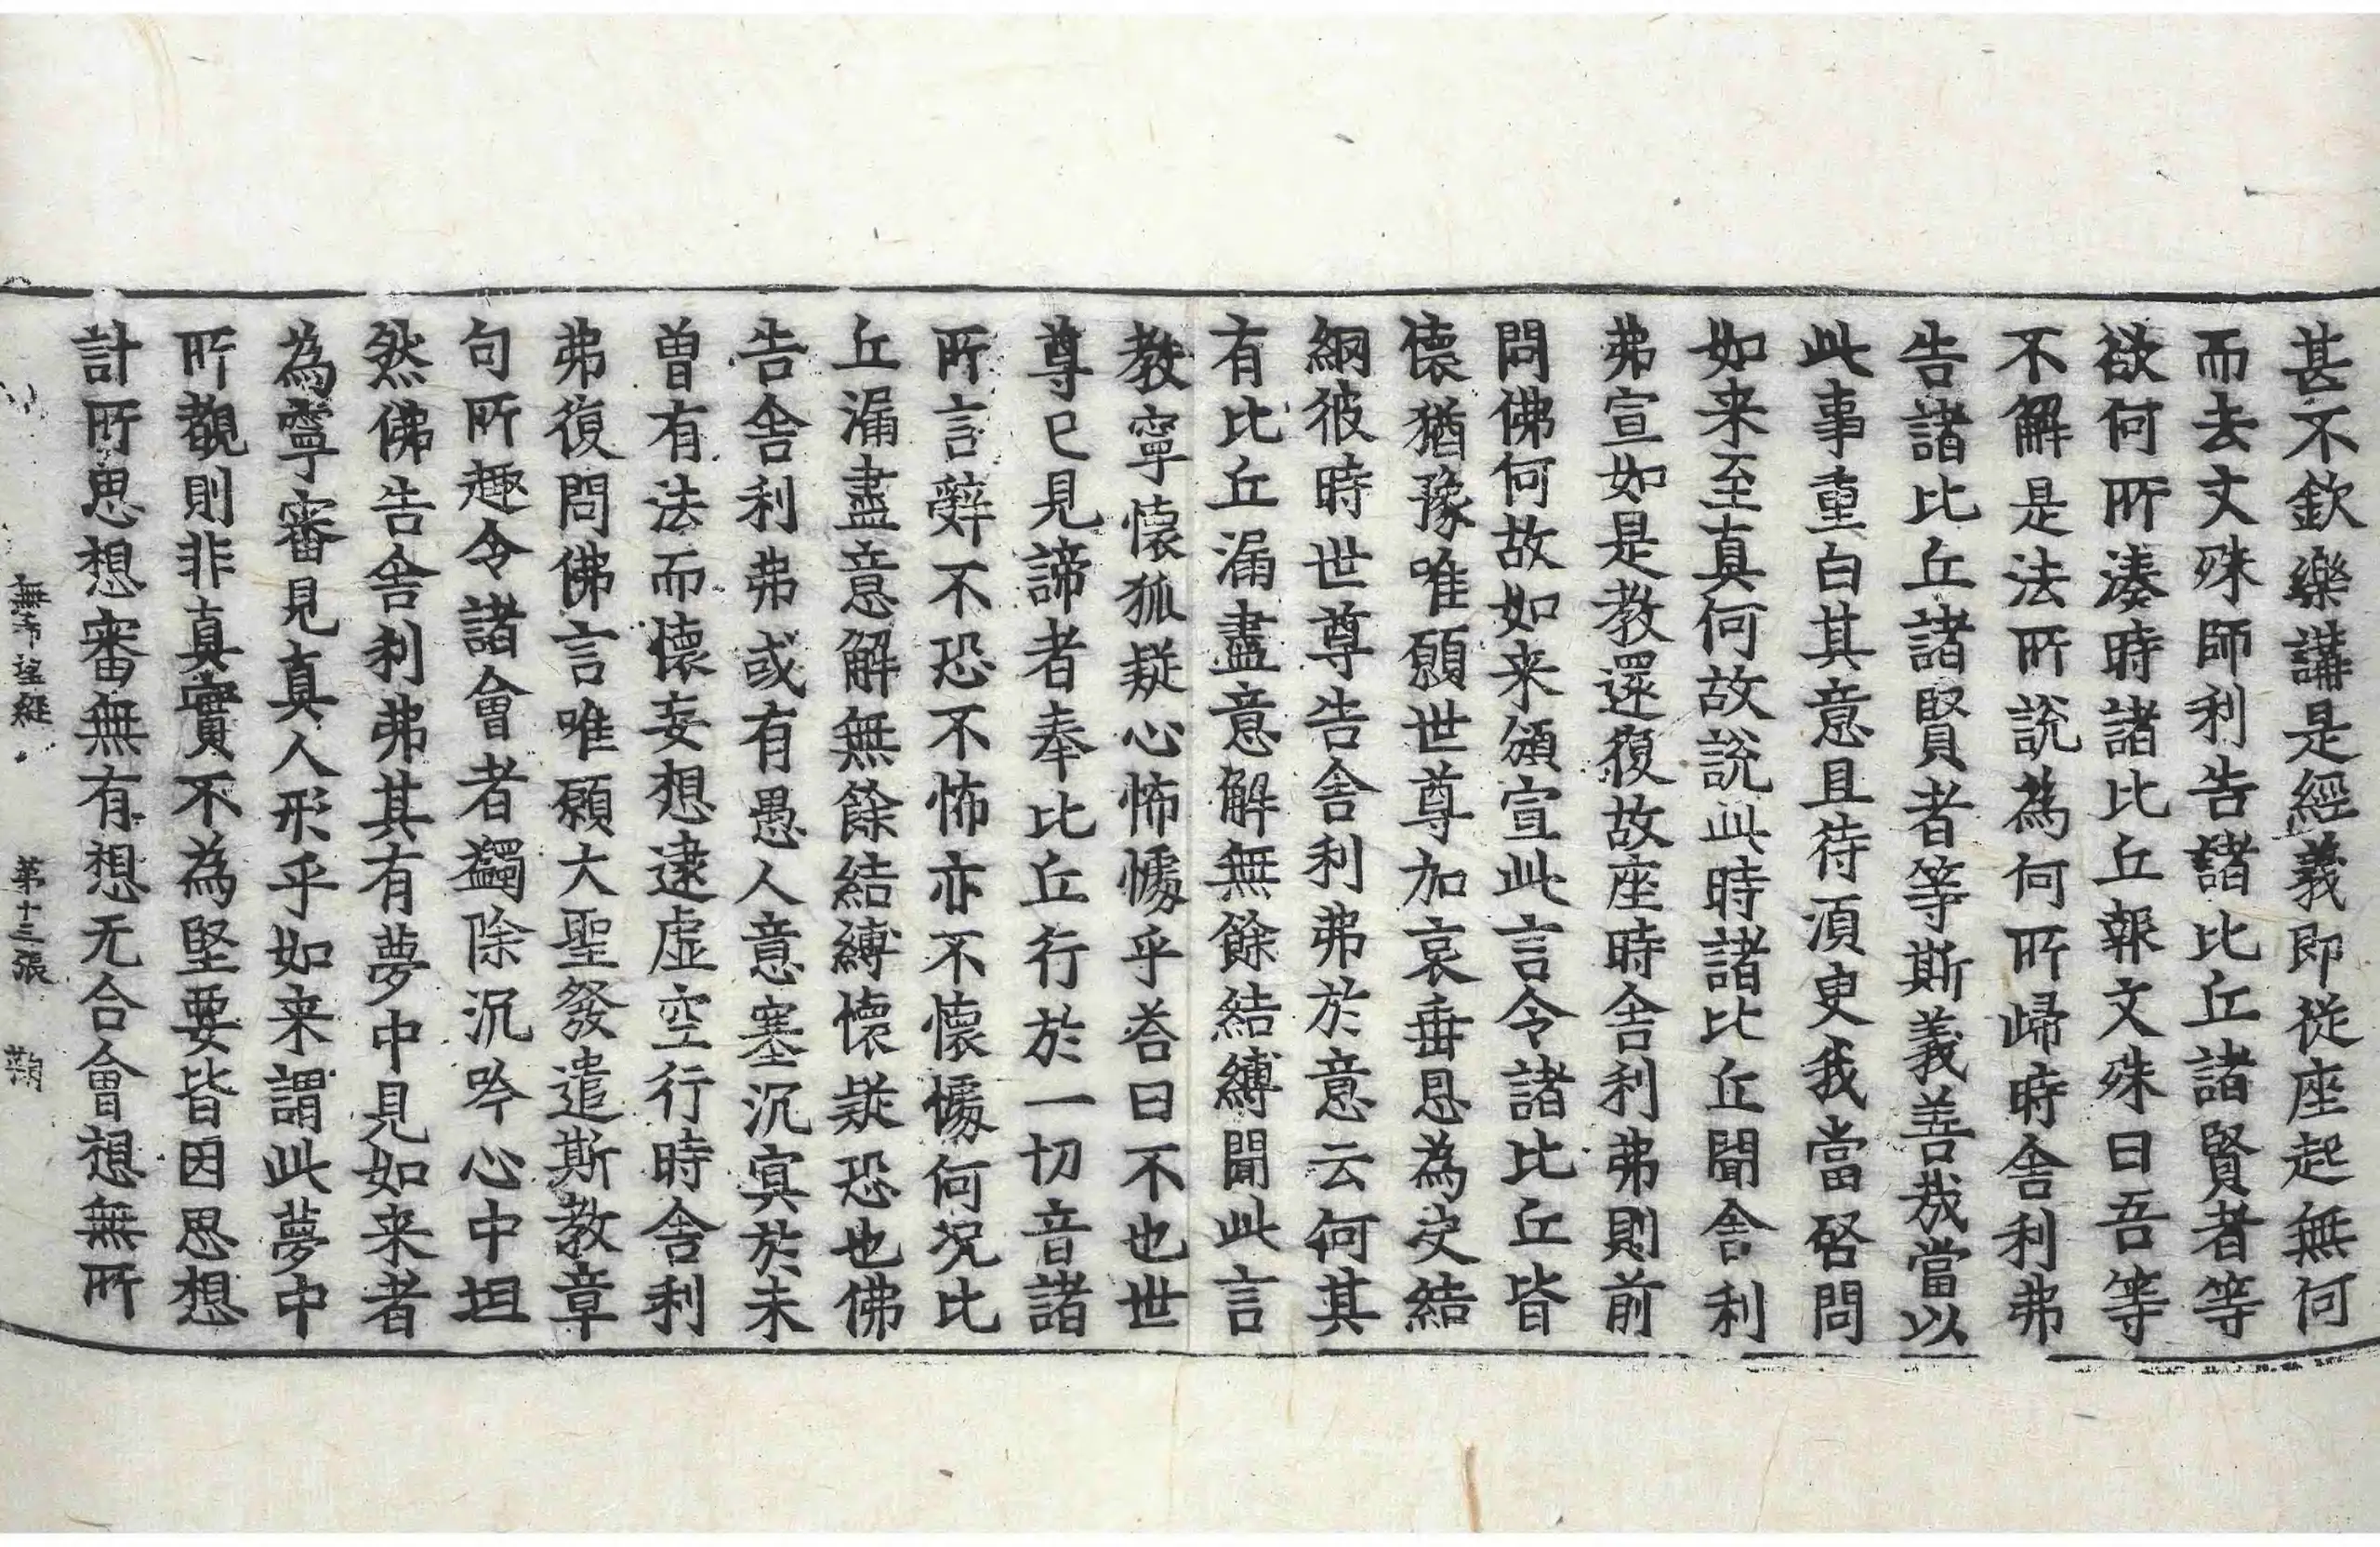 甚不欽樂講是經義即從座起無何
而去文殊師利告諸比丘諸賢者等
欲何所湊時諸比丘報文殊曰吾等
不解是法所說為何所歸時舍利弗
告諸比丘諸賢者等斯義善哉當以
此事重白其意且待須臾我當啓問
如来至真何故說此時諸比丘聞舍利
弗宣如是教還復故座時舍利弗則前
問佛何故如来頒宣此言令諸比丘皆
懷猶豫唯願世尊加哀垂恩為决結
綱彼時世尊告舍利弗於意云何其
有比丘漏盡意解無餘結縛聞此言
教寧懷狐疑心怖懅乎荅曰不也世
尊已見諦者奉比丘行於一切音諸
所言辤不恐不怖亦不懷懅何況比
丘漏盡意解無餘結縛懷疑恐也佛
告舍利弗或有愚人意塞沉冥於未
曾有法而懷妄想逮虛空行時舍利
弗復問佛言唯願大聖發遣斯教章
句所趣令諸會者蠲除沉吟心中坦
然佛告舍利弗其有夢中見如来者
為寧審見真人形乎如来謂此夢中
所觀則非真實不為堅要皆因思想
計所思想審無有想无合會想無所
無希望經　第十三張